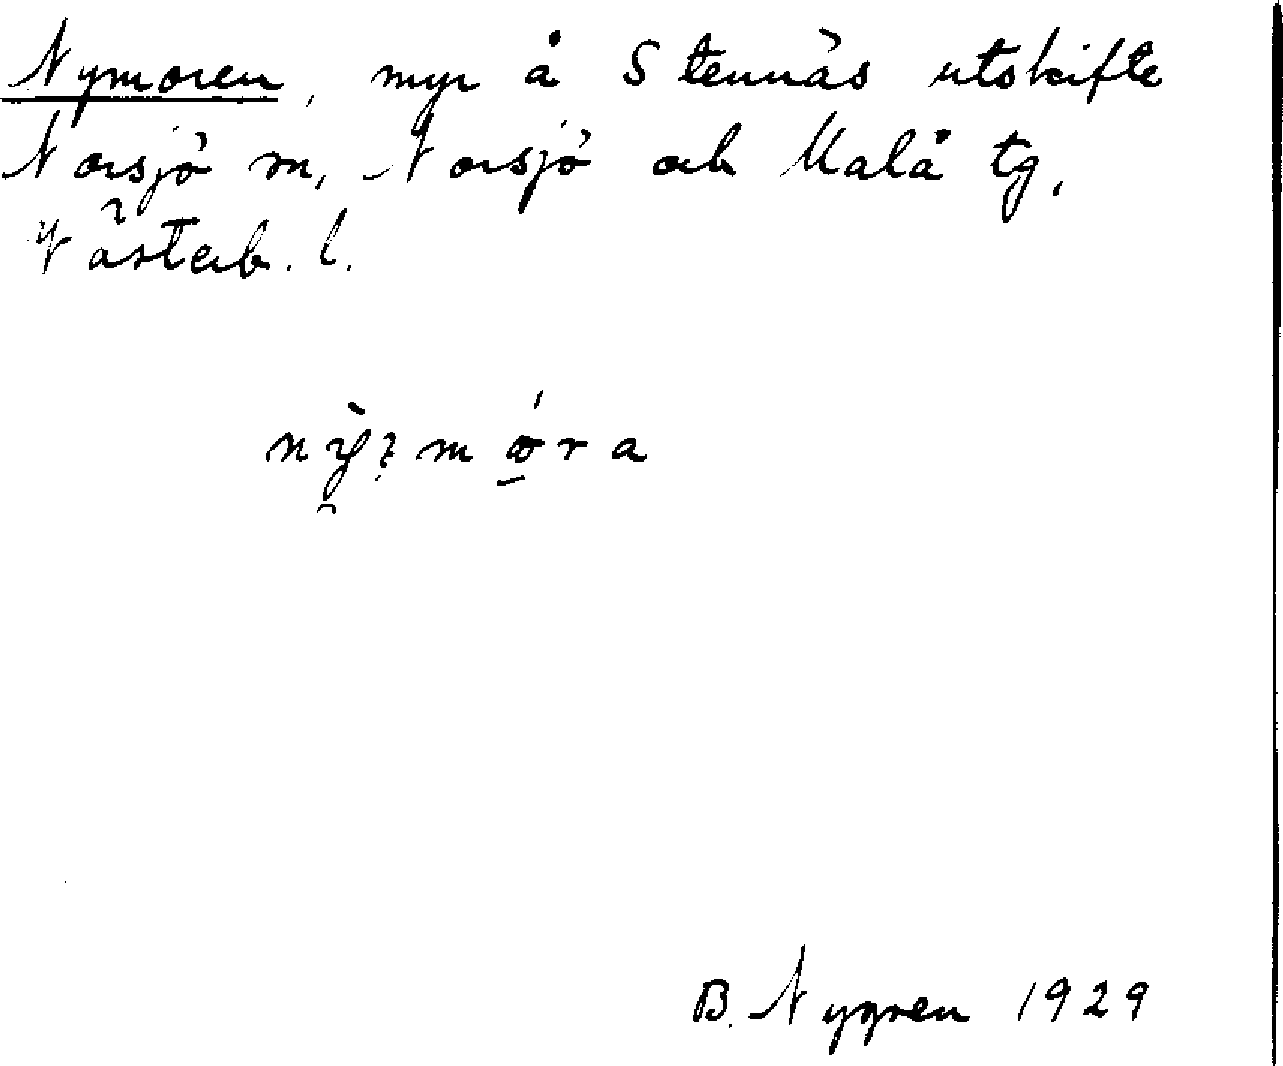 Nymoren, myr å Stennäs utskifte
Norsjö m, Norsjö och Malå tg,
Västerb. l.
B. Nygren 1929